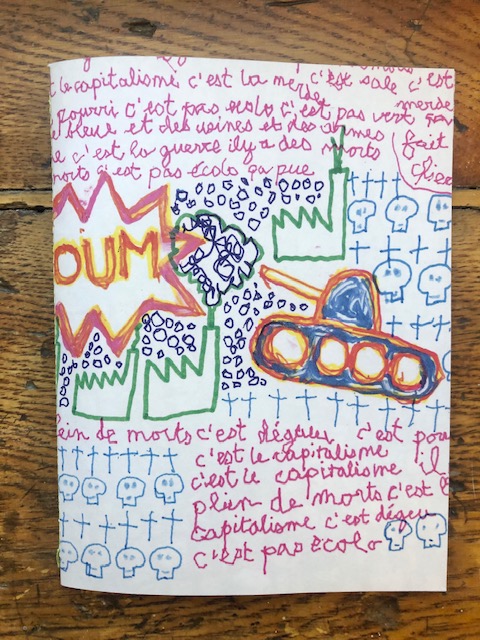 le capitalisme c'est la merde c'est sale c'est
merde
pourri c'est pas écolo c'est pas vert ça
bleue et des usines et des armes
c'est la guerre il y a des morts
fait
chier
morts c'est pas écolo ça pue
OUM
plein de morts c'est dégueu c'est pour
c'est le capitalisme
c'est le capitalisme il
plein de morts c'est le
capitalisme c'est dégeu
c'est pas écolo